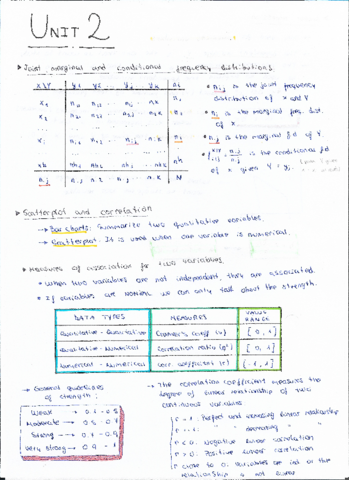 UNIT 2
Joint marginal and conditional frequency distributions
X\Y y1 y2 ... yj ... yk ni.
x1 n11 n12 ... n1j ... n1k n1.
x2 n21 n22 ... n2j ... n2k n2.
xi ni1 ni2 ... nij ... nik ni.
N
nij is the joint frequency
distribution of X and Y
ni. is the marginal freq. dist.
of X.
n.j is the marginal fd of Y.
is the conditional fd
of X given Y = yj
Scatterplot and correlation
→ Bar charts: Summarize two qualitative variables.
→ Scatterplot: It is used when one variable is numerical.
Measures of association for two variables.
• When two variables are not independent, they are associated.
• If variables are nominal we can only talk about the strength.
DATA TYPES MEASURES VALUE RANGE
Qualitative - Qualitative Cramer's coeff (v) [0, 1]
Qualitative - Numerical Correlation ratio (η²) [0, 1]
Numerical - Numerical Corr coefficient (r) [-1, 1]
→ General guidelines
of strength:
Weak → 0.1 - 0.3
Moderate → 0.3 - 0.7
Strong → 0.7 - 0.9
Very strong → 0.9 - 1
→ The correlation coefficient measures the
degree of linear relationship of two
continuous variables
r = 1. Perfect and increasing linear relationship
r = -1. " " decreasing " "
r < 0. Negative linear correlation
r > 0. Positive linear correlation
r close to 0. Variables are ind or the
relationship is not linear